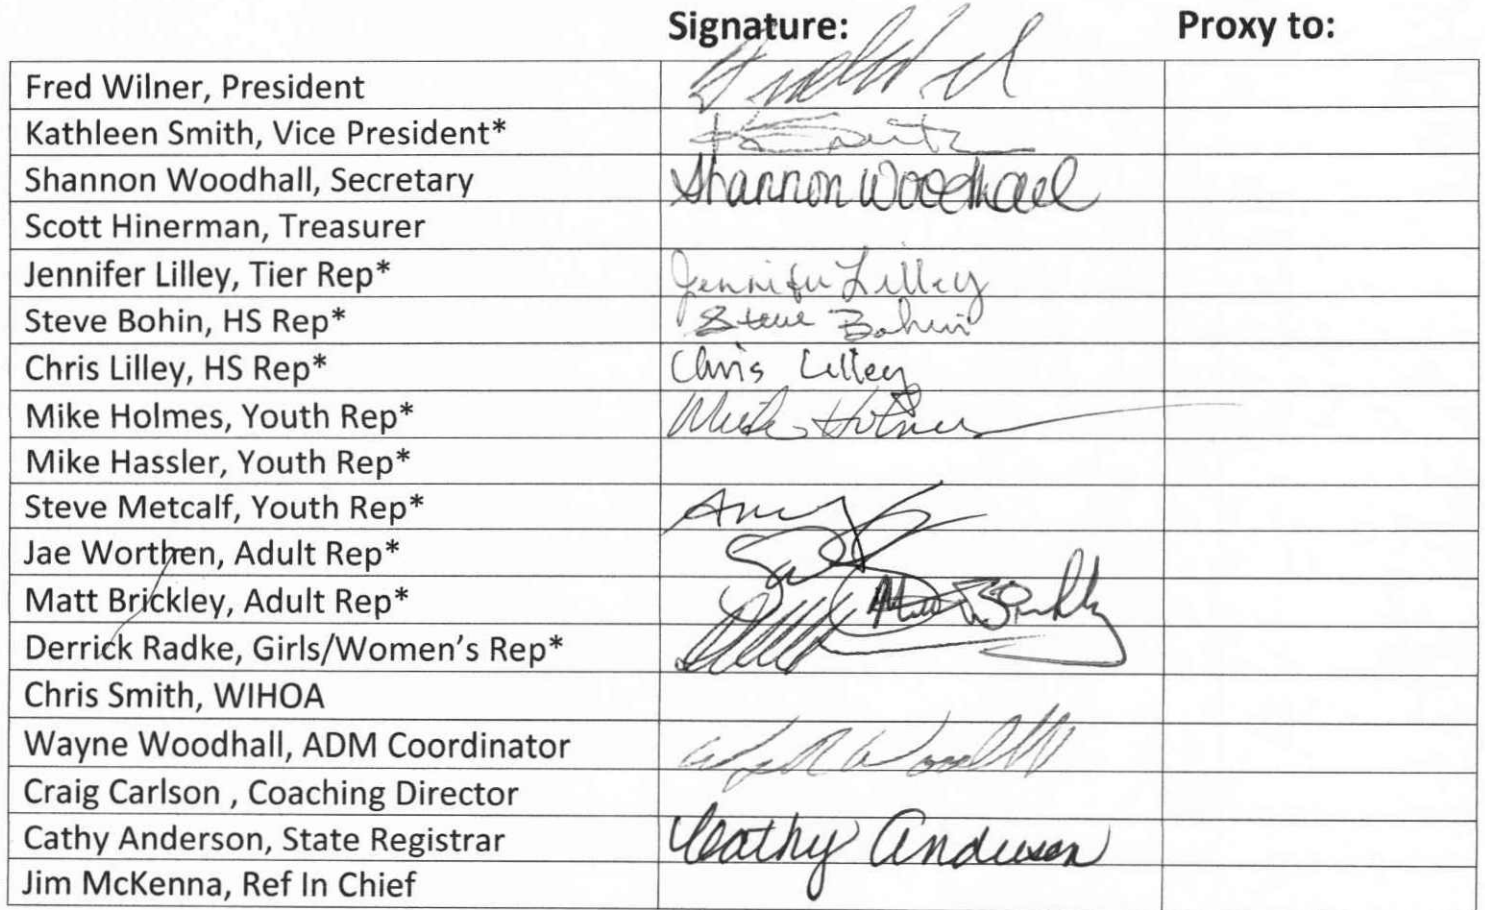 Signature: Proxy to:
Fred Wilner, President
Kathleen Smith, Vice President* K Smith
Shannon Woodhall, Secretary Shannon Woodhall
Scott Hinerman, Treasurer
Jennifer Lilley, Tier Rep* Jennifer Lilley
Steve Bohin, HS Rep* Steve Bohin
Chris Lilley, HS Rep* Chris Lilley
Mike Holmes, Youth Rep* Mike Holmes
Mike Hassler, Youth Rep*
Steve Metcalf, Youth Rep*
Jae Worthen, Adult Rep*
Matt Brickley, Adult Rep* Matt Brickley
Derrick Radke, Girls/Women's Rep*
Chris Smith, WIHOA
Wayne Woodhall, ADM Coordinator
Craig Carlson , Coaching Director
Cathy Anderson, State Registrar Cathy Anderson
Jim McKenna, Ref In Chief